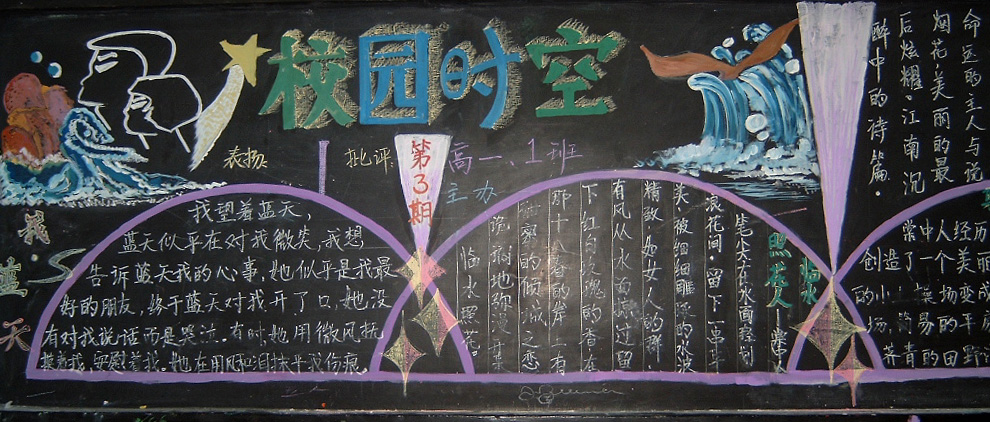 校园时空
表扬:
批评:
第3期
高一、1班
主办
我
蓝
天
我望着蓝天,
蓝天似乎在对我微笑,我想
告诉蓝天我的心事,她似乎是我最
好的朋友,终于蓝天对我开了口,她没
有对我说话而是哭泣.有时,她用微风抚
摸着我,安慰着我。她在用风和泪抚平我伤痕
照花人
临水
笔尖在水面
浪花间.留下一串
精致.如女人的群.
有风从水面掠过留
下红白玫瑰的香.在
那十八春的岸上有
的倾城之恋
地弥漫开来
临水照花。
命运的主人与说
烟花美丽的最
后炫耀.江南沉
醉中的诗篇。
掌中人经历
创造了一个美丽
的小小操场变成
场,简易的平房
荠青的田野